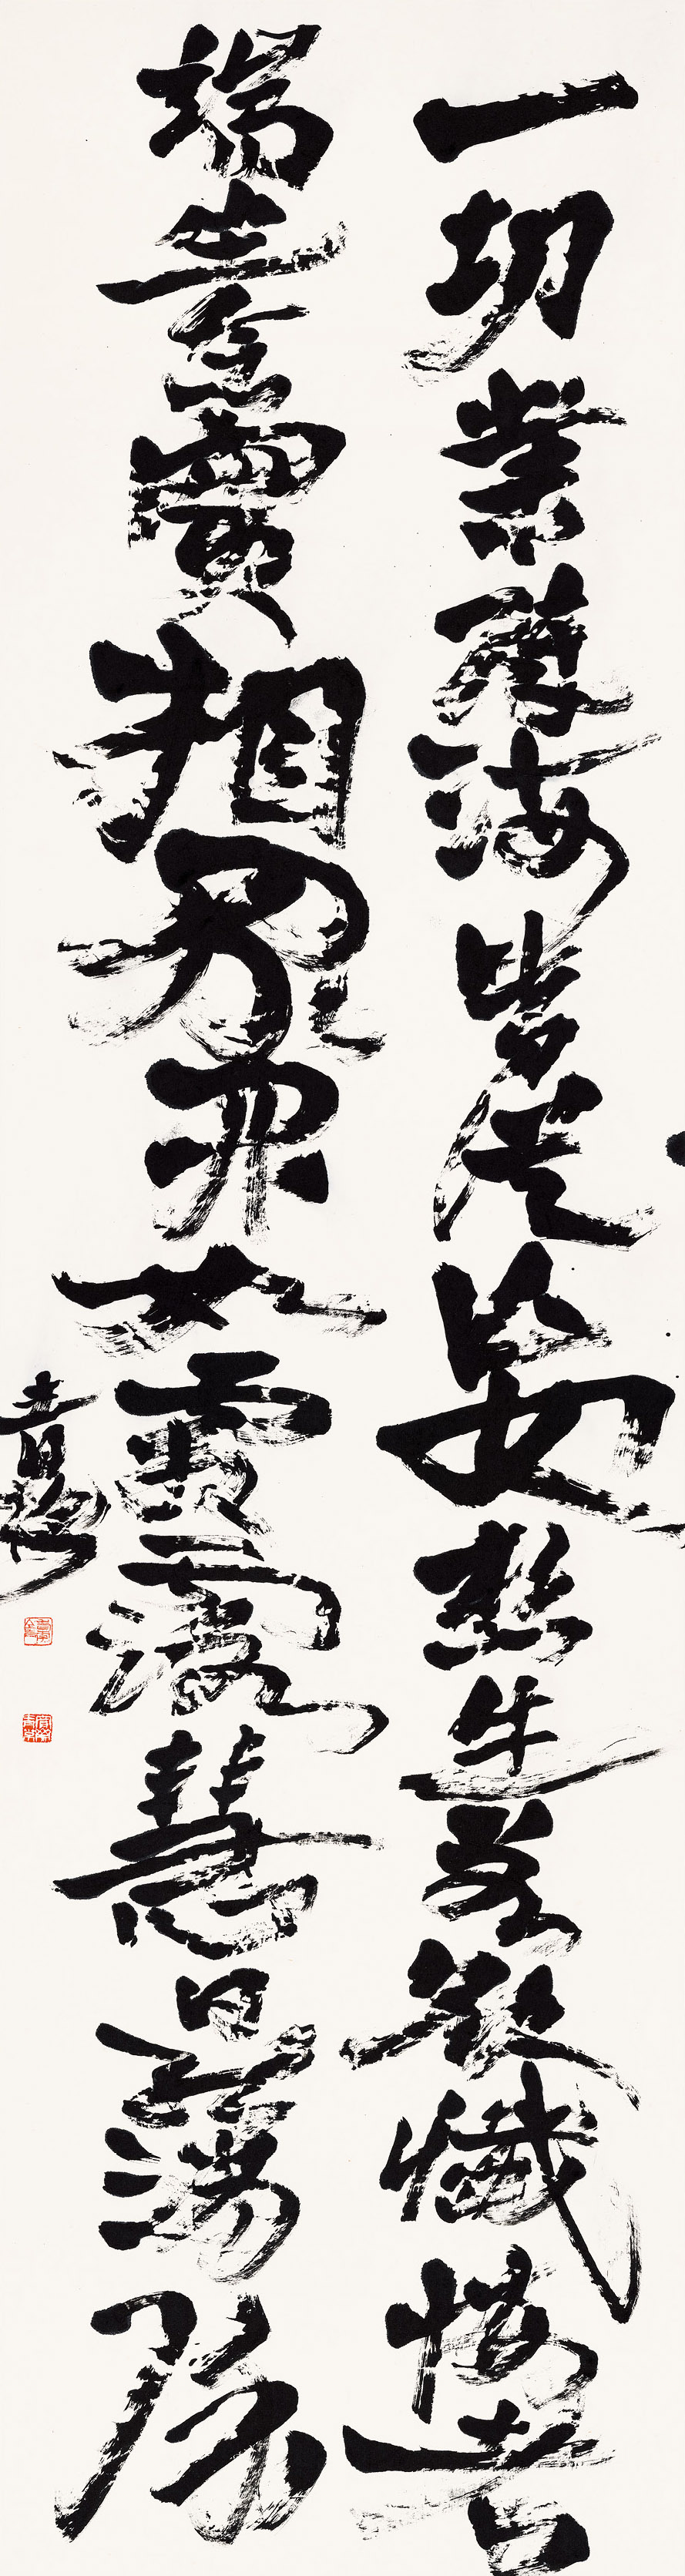 一切業障海皆從妄想生若欲懺悔者
端坐念實相眾罪如霜露慧日能消除